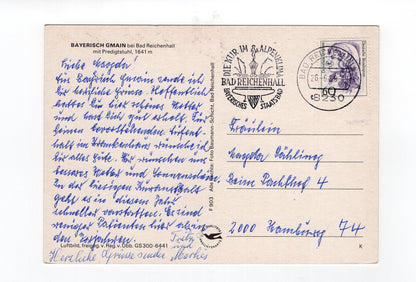 BAYERISCH GMAIN bei Bad Reichenhall
mit Predigtstuhl, 1641 m
Liebe Magda!
Aus Bayrisch Gmain sende ich
Dir herzliche Grüsse. Hoffentlich
hattest Du bis schönes Wetter
und hast Dich gut erholt. Für
Deinen bevorstehenden
im Krankenhaus wünsche ich
Dir alles Gute. Wir wünschen uns
besseres Wetter und Sonnenschein.
In der hiesigen Kuranstalt
geht es in diesem Jahr
schneller vonstatten. Es sind
weniger Patienten hier als in
den
Fritz
und
Herzliche Grüsse sendet
Luftbild, freigeg. v. Reg. v. Obb. GS 300-8441
F 903 Alle Rechte: Foto Baumann-Schicht, Bad Reichenhall
DIE KUR IM ALPENKLIMA
BAD REICHENHALL
BAYERISCHES STAATSBAD
BAD REICHENHALL
8230
Fräulein
Magda
Beim Pachthof 4
2000 Hamburg 74
K